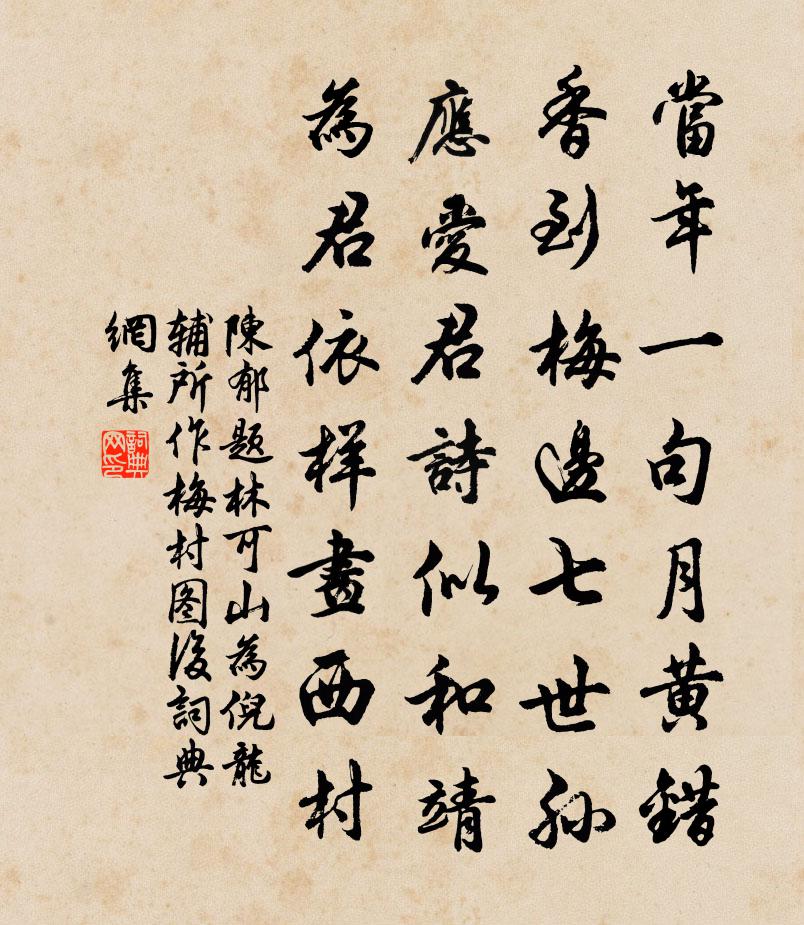 當年一句月黃錯
香到梅邊七世孫
應愛君詩似和靖
為君依样畫西村
陳郁题林可山為倪龍
辅所作梅村图後詞典
網集
詞典网印